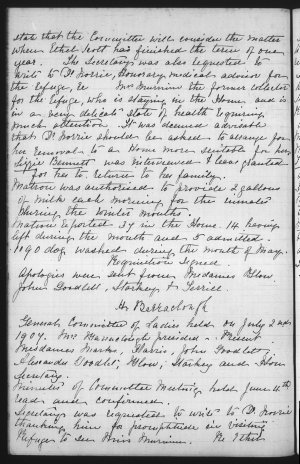 state that the Committee will consider the matter
when Ethel Scott has finished the term of one
year. The Secretary was also requested to
write to Dr Norrie, Honorary medical advisor for
the Refuge, re Mrs Muninn the former collector
for the Refuge, who is staying in the Home and is
in a very delicate state of health requiring
much attention. It was deemed advisable
that Dr Norrie should be asked to arrange for
her removal to a Home more suitable for her.
Lizzie Bennett was interviewed & leave granted
for her to return to her family.
Matron was authorised to provide 2 gallons
of milk each morning for the inmates
during the winter months.
Matron reported 37 in the Home. 14 having
left during the month and 5 admitted.
1090 doz washed during the month of May.
Requisition signed
Apologies were sent from Mesdames
John Goodlet, Starkey &
H Barraclough
General Committee of Ladies held on July 2nd
1907. Mrs Barraclough presided. Present
Mesdames Marks, Harris, John Goodlet
Alexander Goodlet, Starkey and Hon
Secretary.
Minutes of Committee Meeting held June 4th
read and confirmed.
Secretary was requested to write to Dr Norrie
thanking him for promptitude in visiting
Refuge to see Miss Re Ethel